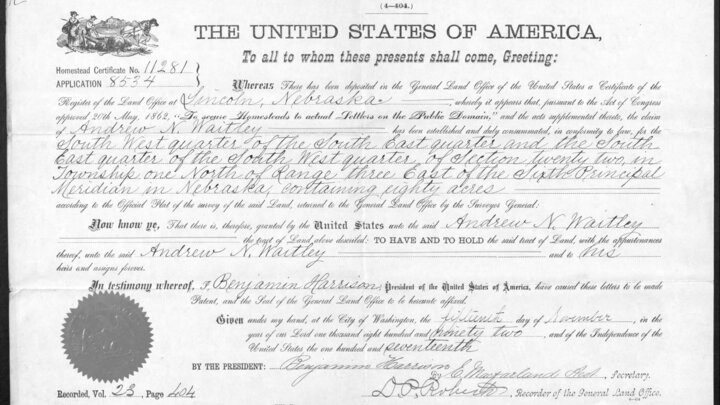 (4—404.)
THE UNITED STATES OF AMERICA,
To all to whom these presents shall come, Greeting:
Homestead Certificate No. 11281
APPLICATION 8534
Whereas There has been deposited in the General Land Office of the United States a Certificate of the
Register of the Land Office at Lincoln, Nebraska, whereby it appears that, pursuant to the Act of Congress
approved 20th May, 1862, "To secure Homesteads to actual Settlers on the Public Domain," and the acts supplemental thereto, the claim
of Andrew N. Waitley has been established and duly consummated, in conformity to law, for the
South West quarter of the South East quarter and the South
East quarter of the South West quarter, of Section twenty two, in
Township one North of Range three East of the Sixth Principal
Meridian in Nebraska, containing eighty acres
according to the Official Plat of the survey of the said Land, returned to the General Land Office by the Surveyor General:
Now know ye, That there is, therefore, granted by the United States unto the said Andrew N. Waitley
the tract of Land above described: TO HAVE AND TO HOLD the said tract of Land, with the appurtenances
thereof, unto the said Andrew N. Waitley and to his
heirs and assigns forever.
In testimony whereof, I, Benjamin Harrison, President of the United States of America, have caused these letters to be made
Patent, and the Seal of the General Land Office to be hereunto affixed.
Given under my hand, at the City of Washington, the fifteenth day of November, in the
year of our Lord one thousand eight hundred and ninety two, and of the Independence of the
United States the one hundred and seventeenth
BY THE PRESIDENT: Benjamin Harrison
By E. Macfarland, Secretary.
D. P. Roberts, Recorder of the General Land Office.
Recorded, Vol. 23, Page 404